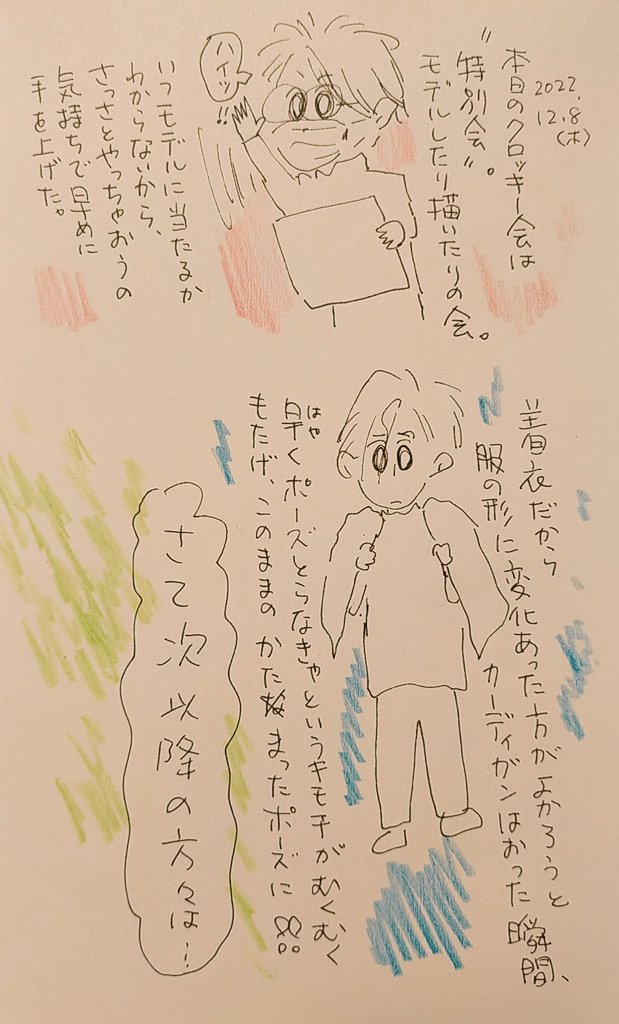 2022.
12.8
(木)
本日のクロッキー会は
"特別会"。
モデルしたり描いたりの会。
ハイッ!!
いつモデルに当たるか
わからないから、
さっさとやっちゃおうの
気持ちで早めに
手を上げた。
着衣だから
服の形に変化あった方がよかろうと
カーディガンはおった瞬間、
早くポーズとらなきゃというキモチがむくむく
はや
もたげ、このままのかたまったポーズに!!
さて次以降の方々は…